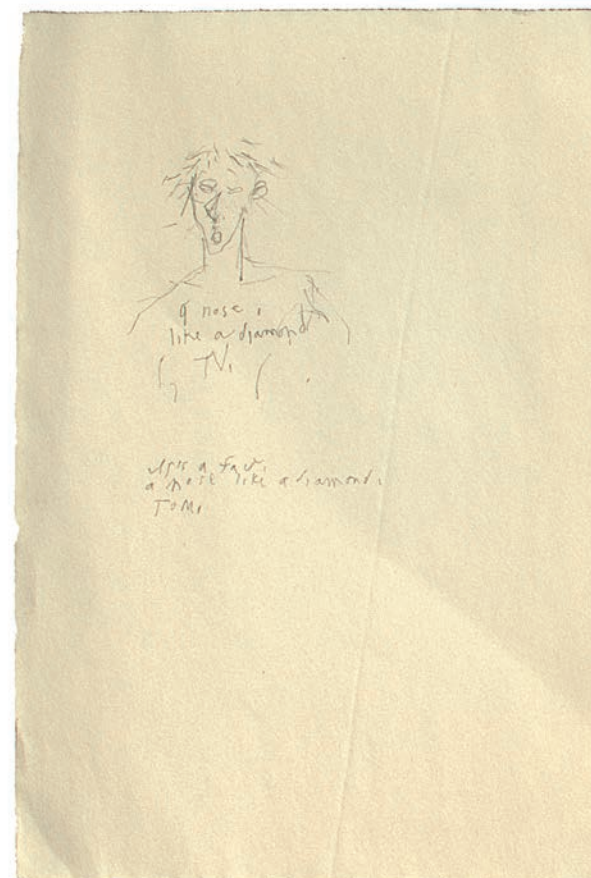 a nose,
like a diamond
a fact,
a nose like a diamond,
TOM,